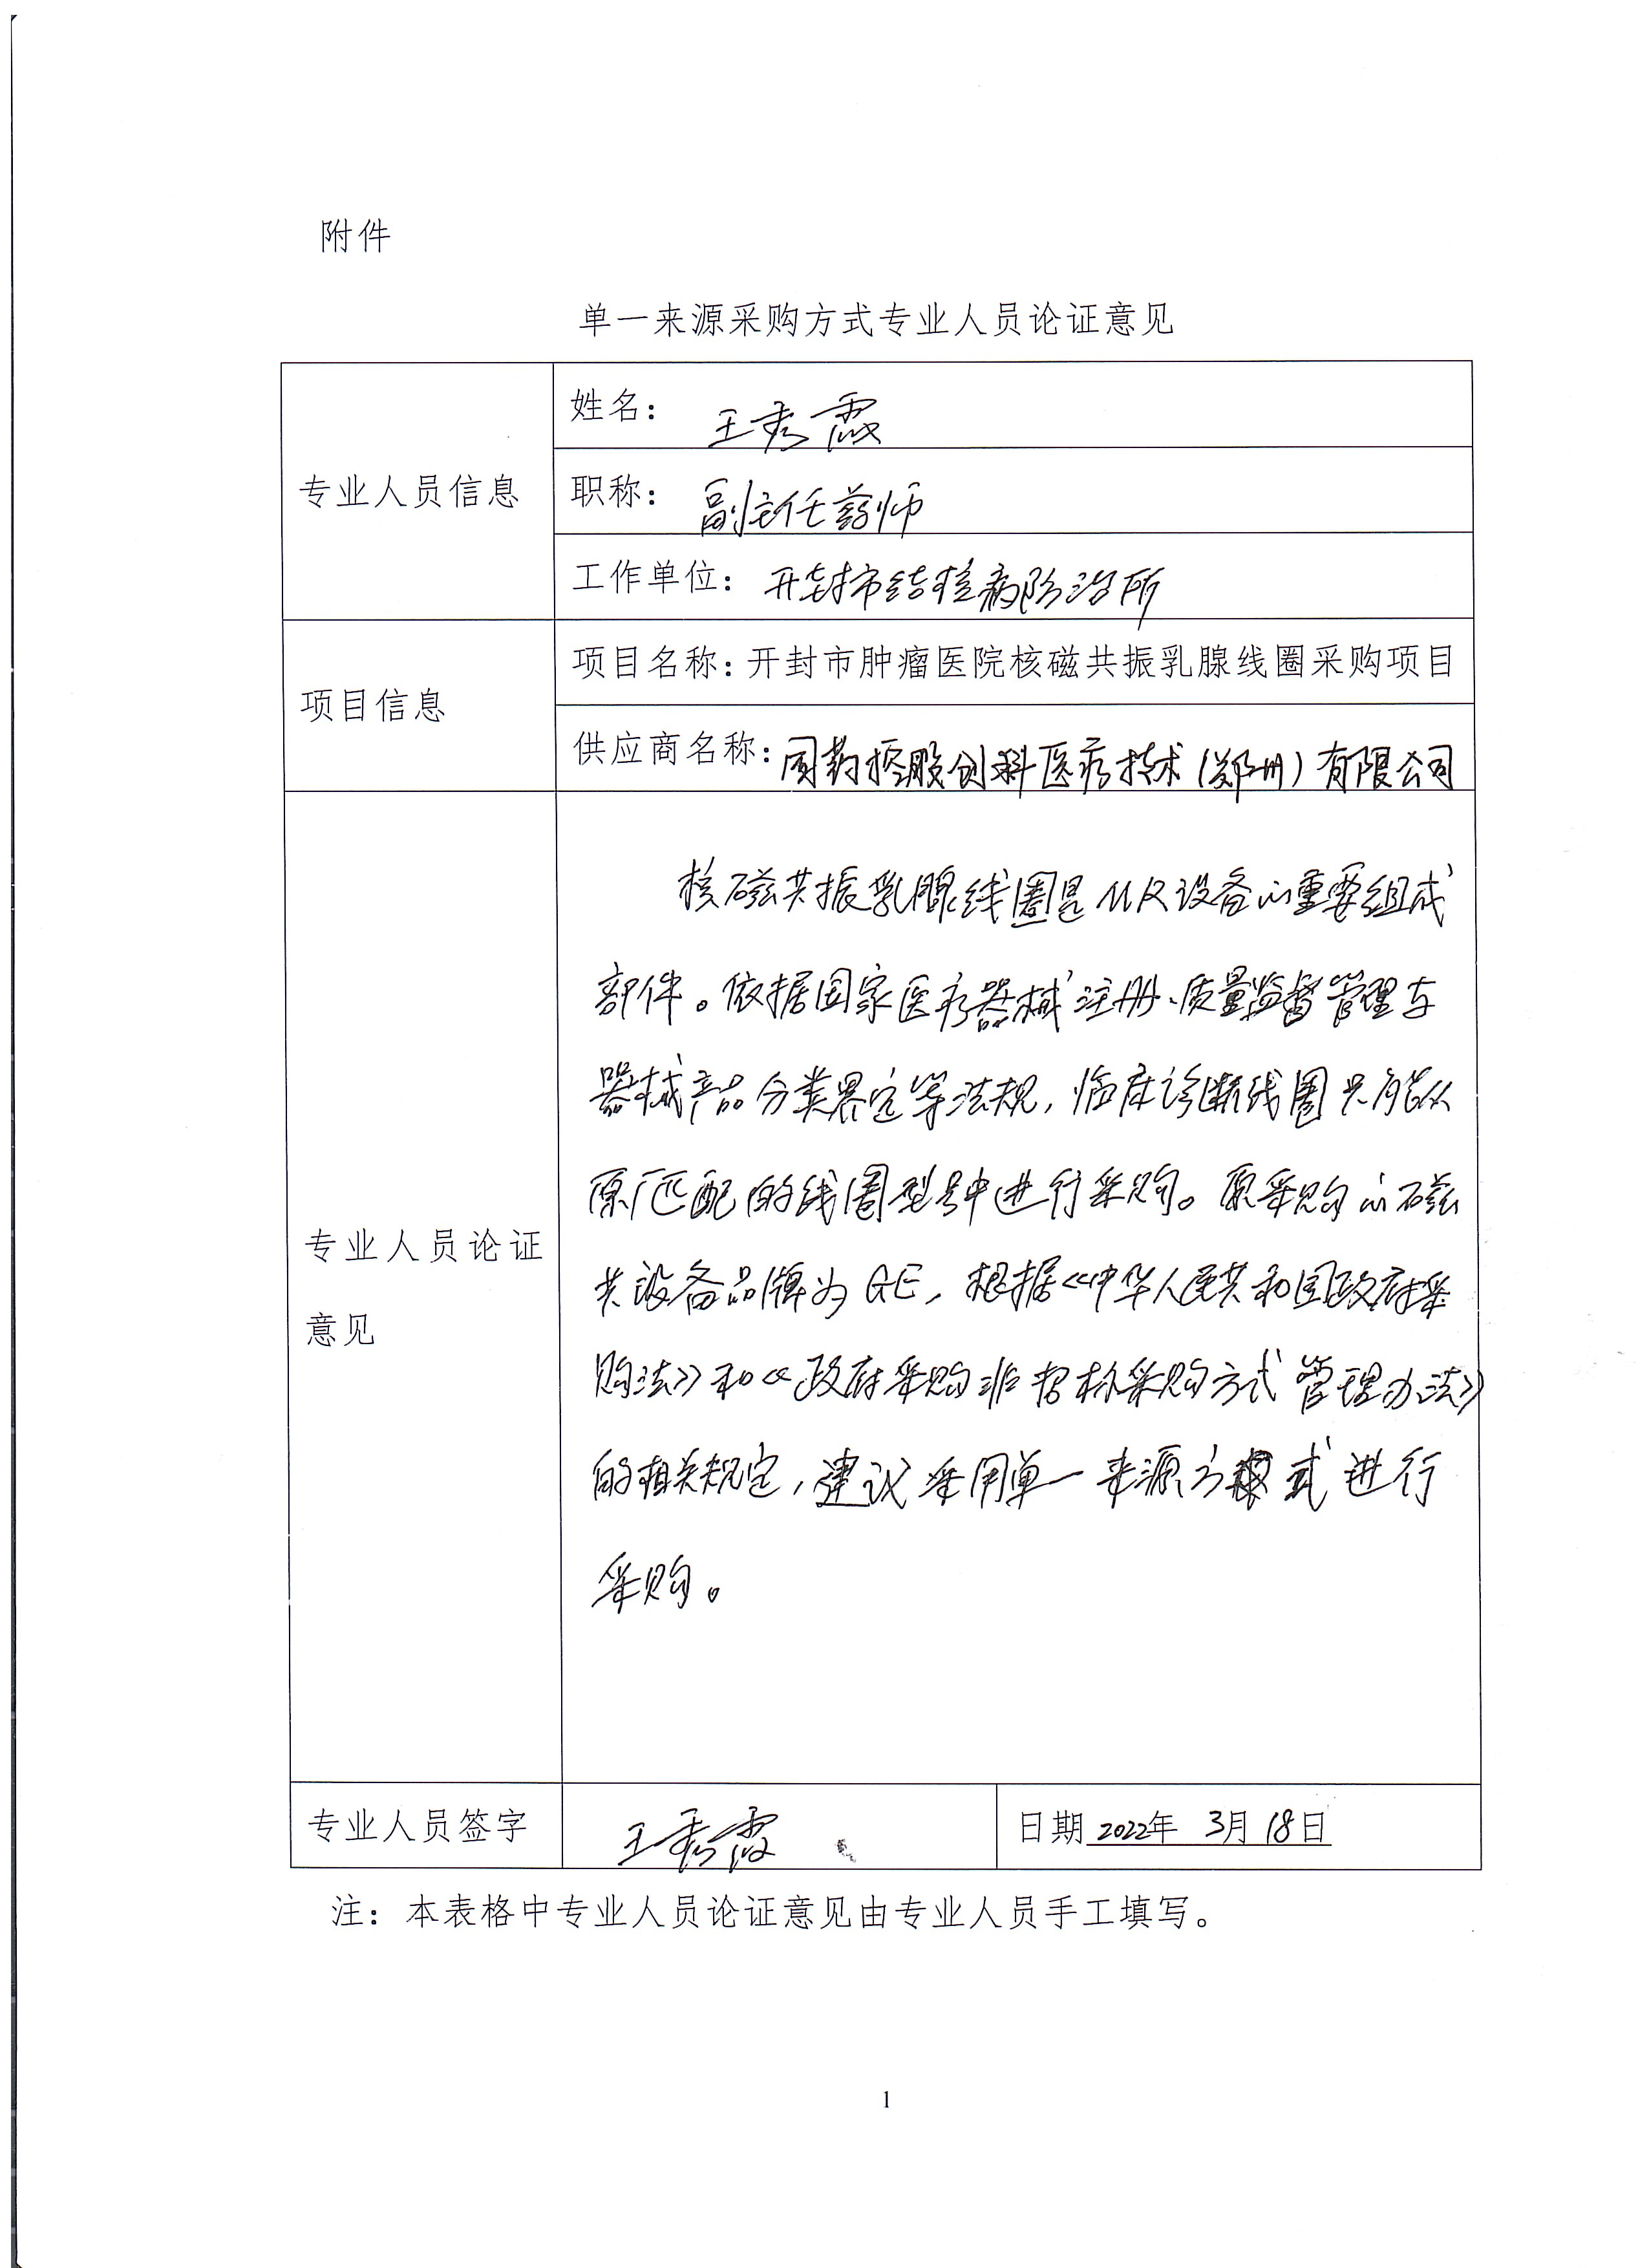 附件
单一来源采购方式专业人员论证意见
专业人员信息
姓名: 王秀霞
职称: 副主任药师
工作单位: 开封市结核病防治所
项目信息
项目名称:开封市肿瘤医院核磁共振乳腺线圈采购项目
供应商名称:国药控股创科医疗技术(郑州)有限公司
专业人员论证
意见
核磁共振乳腺线圈是MR设备的重要组成
部件。依据国家医疗器械注册、质量监督管理与
器械产品分类界定等法规,临床诊断线圈只能从
原厂匹配的线圈型号中进行采购。原采购的磁
共设备品牌为GE,根据《中华人民共和国政府采
购法》和《政府采购非招标采购方式管理办法》
的相关规定,建议采用单一来源方式进行
采购。
专业人员签字 王秀霞 日期 2022年 3月 18日
注: 本表格中专业人员论证意见由专业人员手工填写。
1